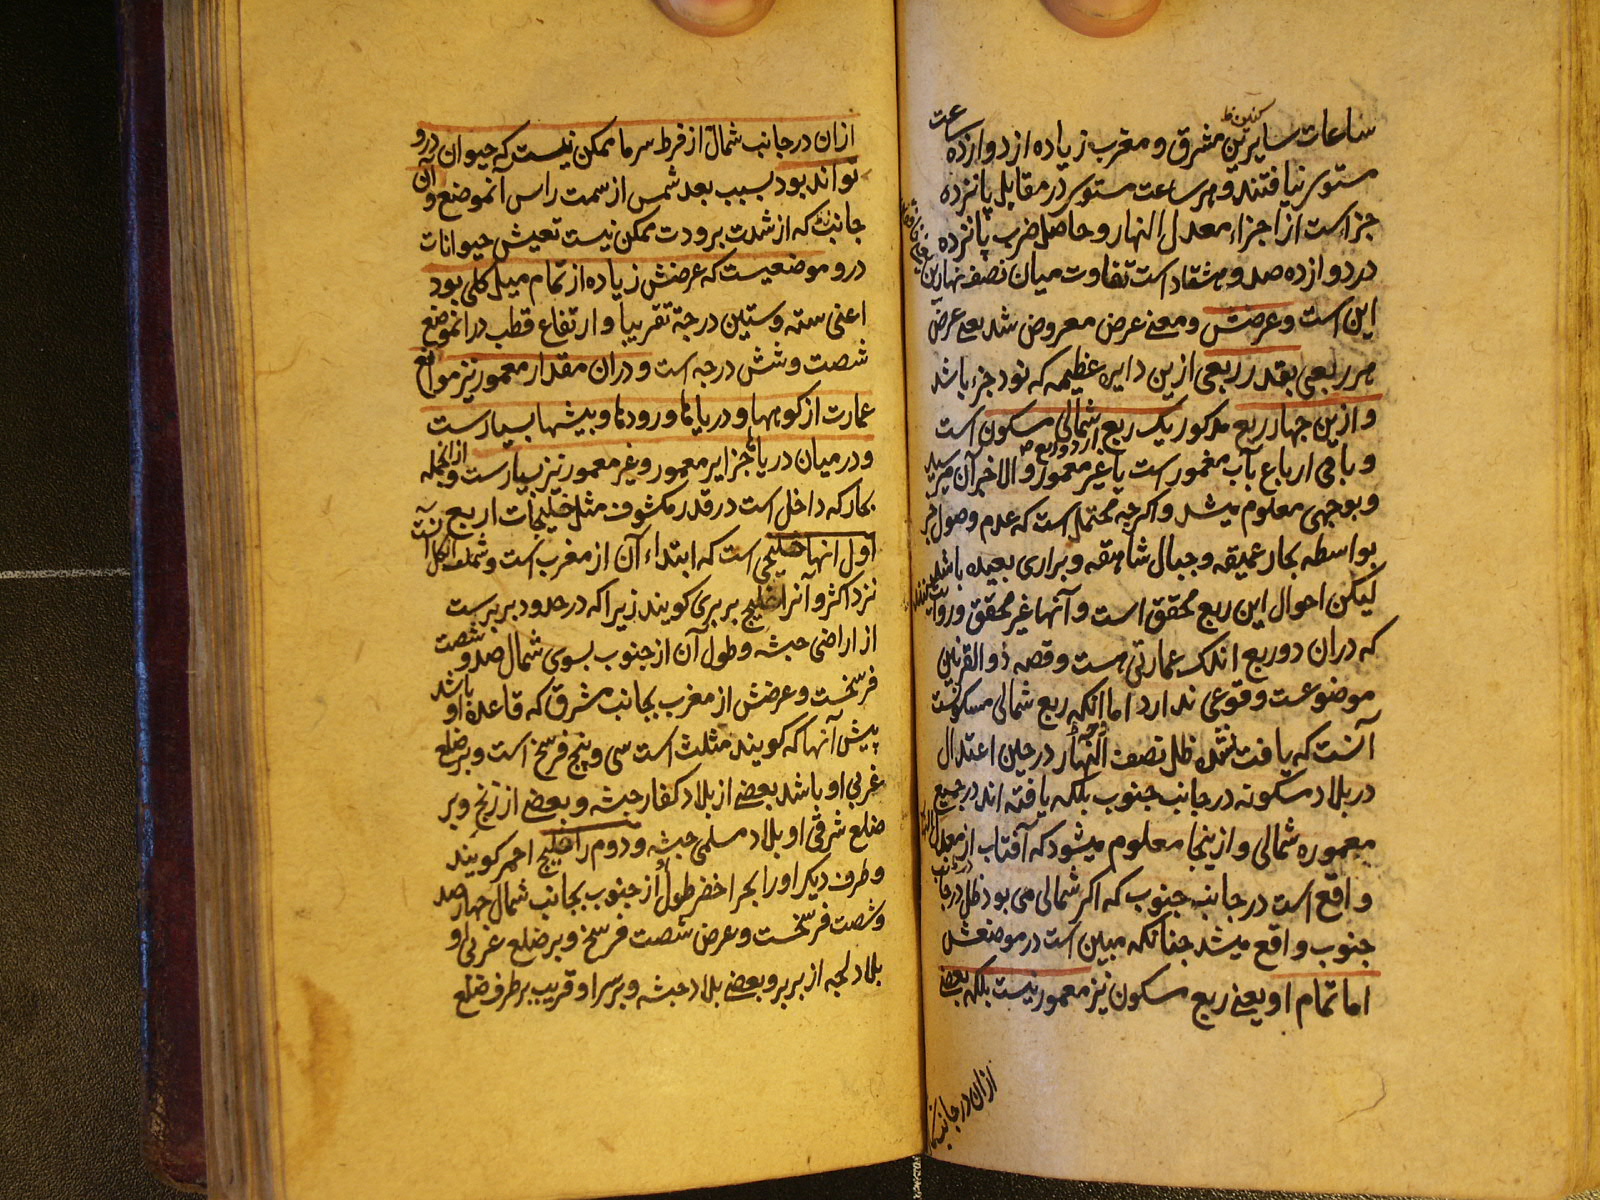 ساعات سایرین مشرق و مغرب زیاده از دوازده ساعت
مستوی نیافتند و هر ساعت مستوی در مقابل پانزده
جزء است از اجزاء معدل النهار و حاصل ضرب پانزده
در دوازده صد و هشتاد است تفاوت میان نصف نهارین
این است و عرضش و معنی عرض معروض شد یعنی عرض
هر ربعی بقدر ربعی ازین دایره عظیمه که نود جزء باشد
و ازین چهار ربع مذکور یک ربع شمالی مسکون است
و باقی ارباع بآب مغمورست یا غیر معمور و الا خبر آن میرسید
و بوجهی معلوم میشد و اکرچه محتمل است که عدم وصول خبر
بواسطه بحار عمیقه و جبال شاهقه و براری بعیده باشد
لیکن احوال این ربع محقق است و آنها غیر محقق و روایت
که دران دو ربع اندک عمارتی هست و قصه ذوالقرنین
موضوعست وقوعی ندارد اما انکه ربع شمالی مسکونست
آنست که یافت نشده ظل نصف النهار در حین اعتدال
در بلاد مسکونه در جانب جنوب بلکه یافته اند در جمیع
معموره شمالی و ازینجا معلوم میشود که آفتاب از معدل
واقع است در جانب جنوب که اکر شمالی می بود ظل در جانب
جنوب واقع میشد چنانکه مبین است در موضعش
اما تمام او یعنی ربع مسکون نیز معمور نیست بلکه بعضی
ازان در جانب
ازان در جانب شمال از فرط سرما ممکن نیست که حیوان درو
تواند بود بسبب بعد شمس از سمت راس آنموضع و آن
جانبی که از شدت برودت ممکن نیست تعیش حیوانات
درو موضعیست که عرضش زیاده از تمام میل کلی بود
اعنی سته و ستین درجة تقریبا و ارتفاع قطب درانموضع
شصت و شش درجه است و دران مقدار معمور نیز موانع
عمارت از کوهها و دریاها و رودها و بیشها بسیارست
و در میان دریاها جزایر معمور و غیر معمور نیز بسیارست و از انجمله
بحار که داخل است در قدر مکشوف مثل خلیجات اربع
اول انها خلیجی است که ابتداء آن از مغرب است و
نزد اکثر و آنرا خلیج بربری کویند زیرا که در حدود بربرست
از اراضی حبشه و طول آن از جنوب بسوی شمال صد و شصت
فرسخست و عرضش از مغرب بجانب مشرق که قاعده او باشد
پیش آنها که کویند مثلث است سی و پنج فرسخ است و بر ضلع
غربی او باشد بعضی از بلاد کفار حبشه و بعضی از زنج و بر
ضلع شرقی او بلاد مسلمی حبشه و دوم را خلیج احمر کویند
و طرف دیکر او را بحر اخضر طول او از جنوب بجانب شمال چهار صد
و شصت فرسخست و عرض شصت فرسخ و بر ضلع غربی او
بلاد لجه از بربر و بعضی بلاد حبشه و بر سر او قریب بر طرف ضلع